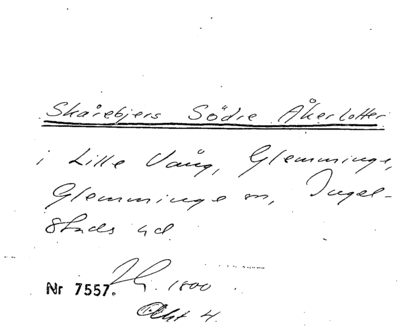 Skårebjers Södre Åkerlotter
i Lille Vång, Glemminge,
Glemminge sn, Ingel-
stads hd
1800
Nr 7557.
Akt 4.